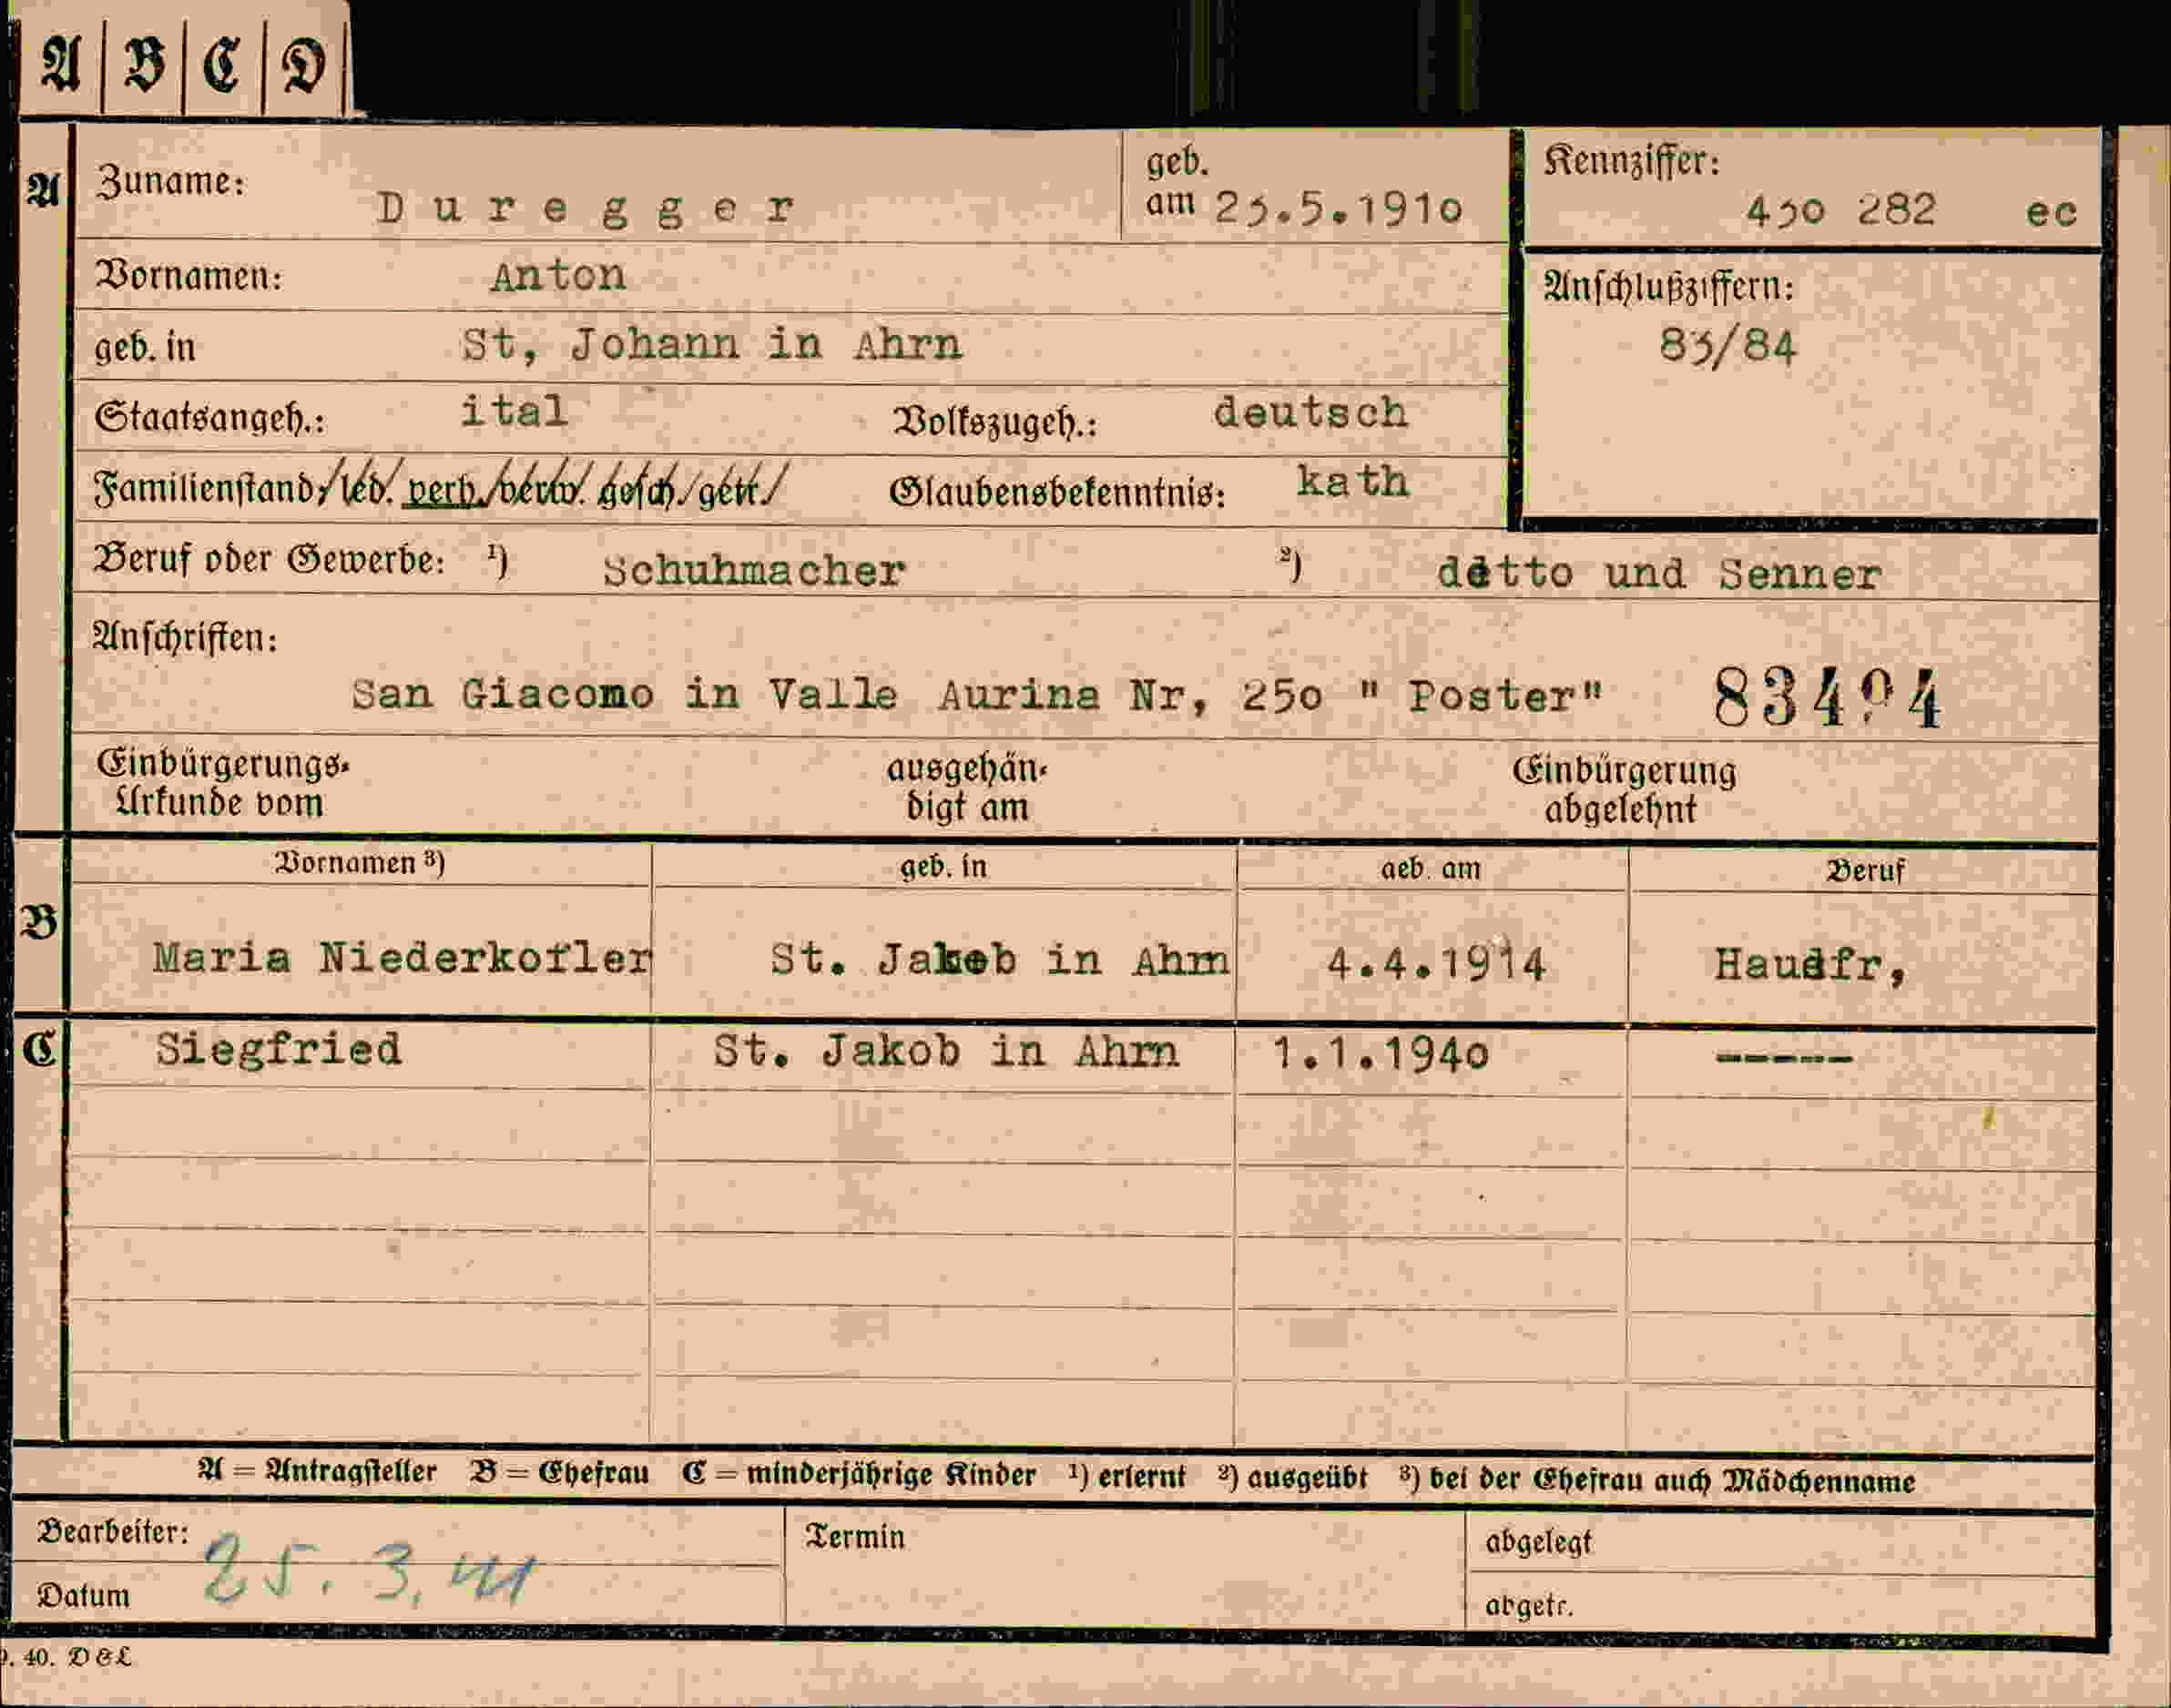 A B C D
A Zuname: Duregger geb. am 23.5.1910 Kennziffer: 430 282 ec
Vornamen: Anton Anschlußziffern:
geb. in St, Johann in Ahrn 83/84
Staatsangeh.: ital Volkszugeh.: deutsch
Familienstand: led. verh. verw. gesch. getr. Glaubensbekenntnis: kath
Beruf oder Gewerbe: ¹) Schuhmacher ²) detto und Senner
Anschriften:
San Giacomo in Valle Aurina Nr, 250 " Poster"
Einbürgerungs- ausgehän- Einbürgerung
Urkunde vom digt am abgelehnt
Vornamen ³) geb. in geb. am Beruf
B Maria Niederkofler St. Jakob in Ahrn 4.4.1914 Hausfr,
C Siegfried St. Jakob in Ahrn 1.1.1940 -----
A = Antragsteller B = Ehefrau C = minderjährige Kinder ¹) erlernt ²) ausgeübt ³) bei der Ehefrau auch Mädchenname
Bearbeiter: Termin abgelegt
25. 3. 41
Datum abgetr.
40. D & L